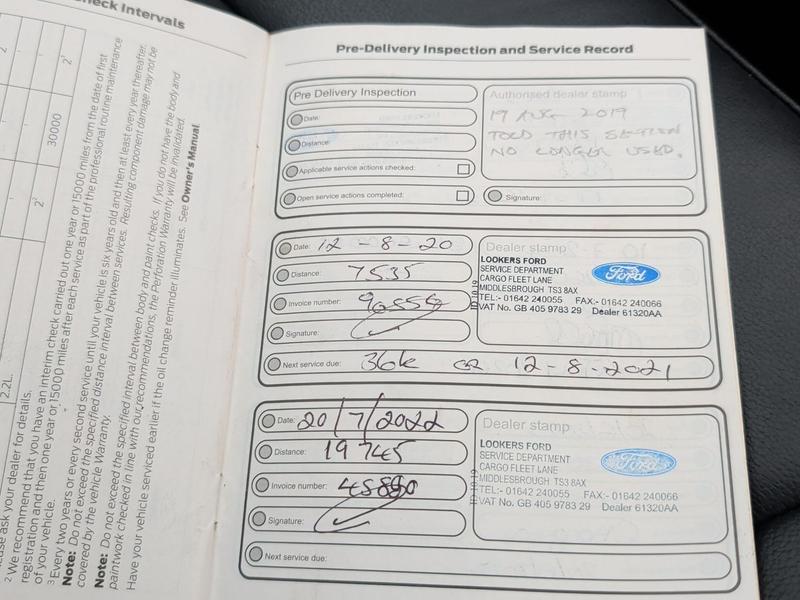 Check Intervals
2
2¹
30000
2¹
2.2L.
Please ask your dealer for details.
² We recommend that you have an interim check carried out one year or 15000 miles from the date of first
registration and then one year or 15000 miles after each service as part of the professional routine maintenance
of your vehicle.
³ Every two years or every second service until your vehicle is six years old and then at least every year thereafter.
Note: Do not exceed the specified distance interval between services. Resulting component damage may not be
covered by the vehicle Warranty.
Note: Do not exceed the specified interval between body and paint checks. If you do not have the body and
paintwork checked in line with our recommendations, the Perforation Warranty will be invalidated.
Have your vehicle serviced earlier if the oil change reminder illuminates. See Owner's Manual.
Pre-Delivery Inspection and Service Record
Pre Delivery Inspection
Date:
Distance:
Applicable service actions checked:
Open service actions completed:
Authorised dealer stamp
19 AUG 2019
TOLD THIS SECTION
NO LONGER USED.
Signature:
Date: 12 - 8 - 20
Distance: 7535
Invoice number:
Signature:
Next service due: 36k OR 12 - 8 - 2021
Dealer stamp
LOOKERS FORD
SERVICE DEPARTMENT
CARGO FLEET LANE
MIDDLESBROUGH TS3 8AX
TEL:- 01642 240055 FAX:- 01642 240066
VAT No. GB 405 9783 29 Dealer 61320AA
Ford
ID 10.19
Date: 20/7/2022
Distance: 19745
Invoice number:
Signature:
Next service due:
Dealer stamp
LOOKERS FORD
SERVICE DEPARTMENT
CARGO FLEET LANE
MIDDLESBROUGH TS3 8AX
TEL:- 01642 240055 FAX:- 01642 240066
VAT No. GB 405 9783 29 Dealer 61320AA
Ford
ID 10.19